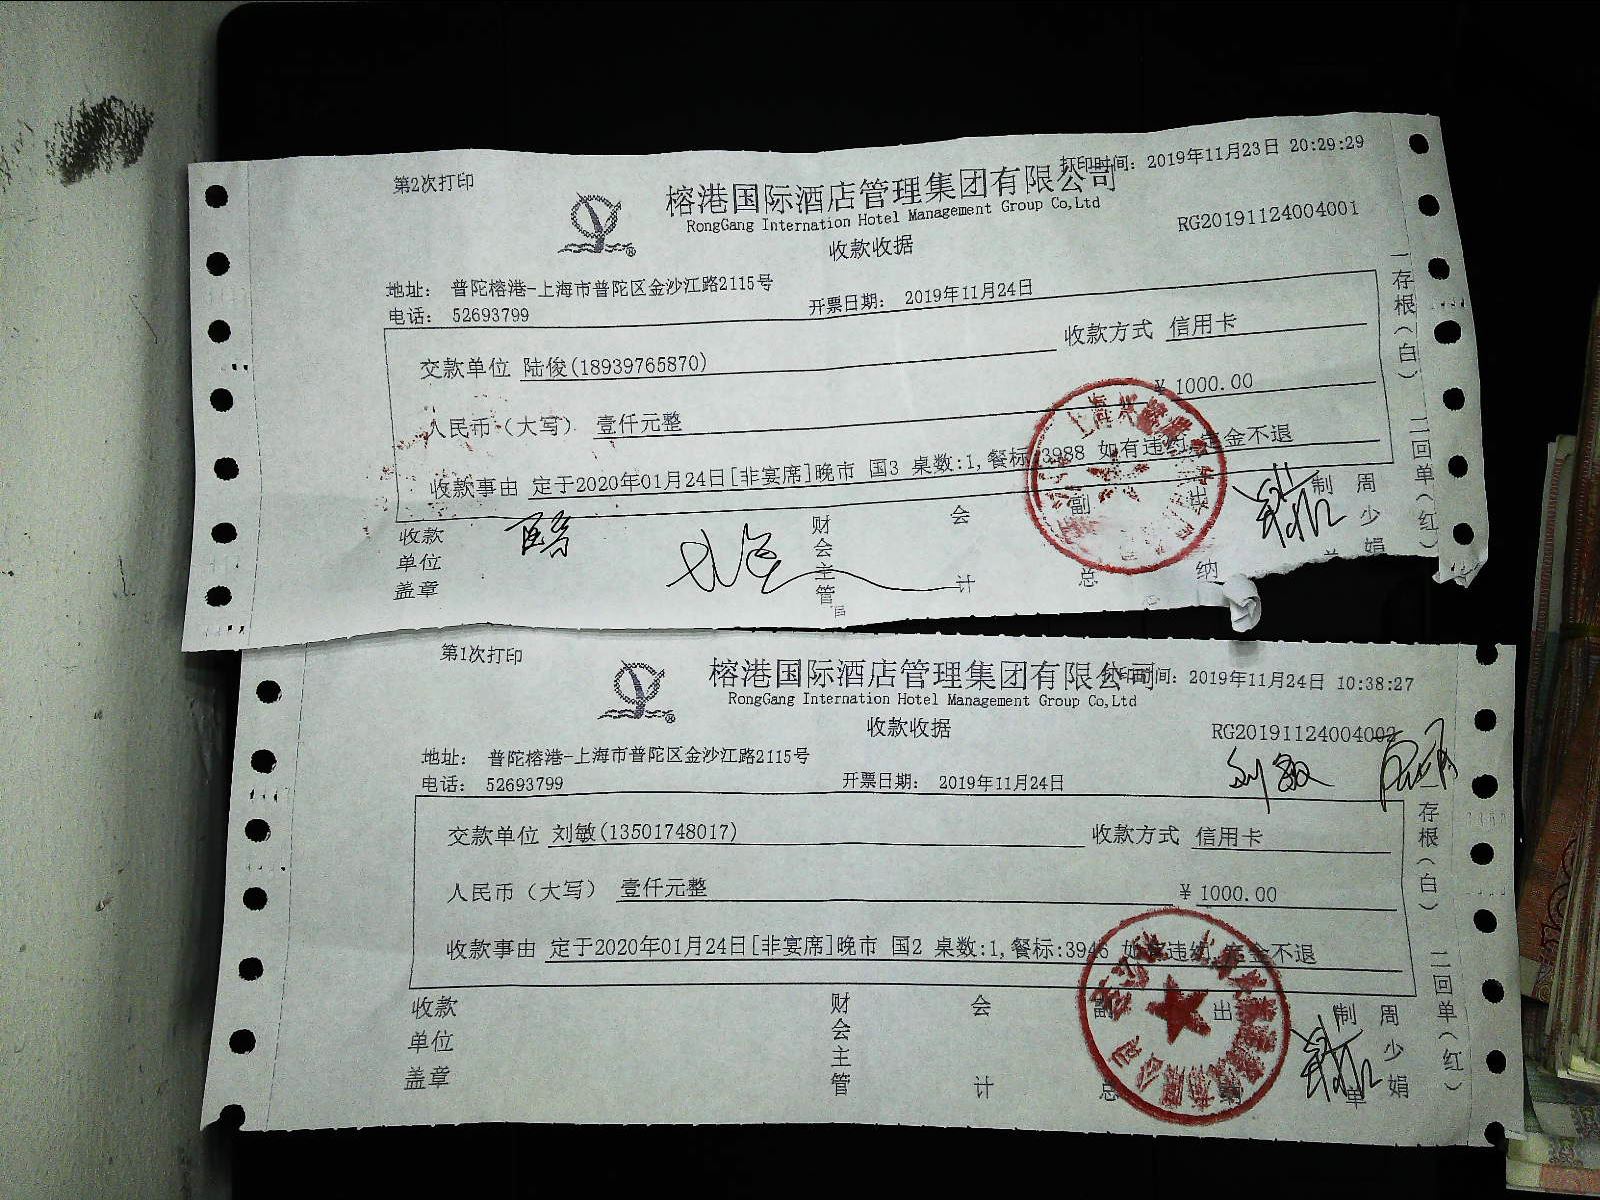 第2次打印
打印时间：2019年11月23日 20:29:29
榕港国际酒店管理集团有限公司
RongGang Internation Hotel Management Group Co,Ltd
RG20191124004001
收款收据
地址： 普陀榕港-上海市普陀区金沙江路2115号
电话： 52693799
开票日期： 2019年11月24日
交款单位 陆俊(18939765870)
收款方式 信用卡
人民币（大写） 壹仟元整
¥ 1000.00
收款事由 定于2020年01月24日[非宴席]晚市 国3 桌数:1,餐标:3988 如有违约,定金不退
收款单位盖章
财会主管
会计
副总
出纳
制单
周少娟
一存根（白） 二回单（红）
第1次打印
打印时间：2019年11月24日 10:38:27
榕港国际酒店管理集团有限公司
RongGang Internation Hotel Management Group Co,Ltd
收款收据
RG20191124004002
刘敏
地址： 普陀榕港-上海市普陀区金沙江路2115号
电话： 52693799
开票日期： 2019年11月24日
交款单位 刘敏(13501748017)
收款方式 信用卡
人民币（大写） 壹仟元整
¥ 1000.00
收款事由 定于2020年01月24日[非宴席]晚市 国2 桌数:1,餐标:3946 如有违约,定金不退
收款单位盖章
财会主管
会计
副总
出纳
制单
周少娟
一存根（白） 二回单（红）